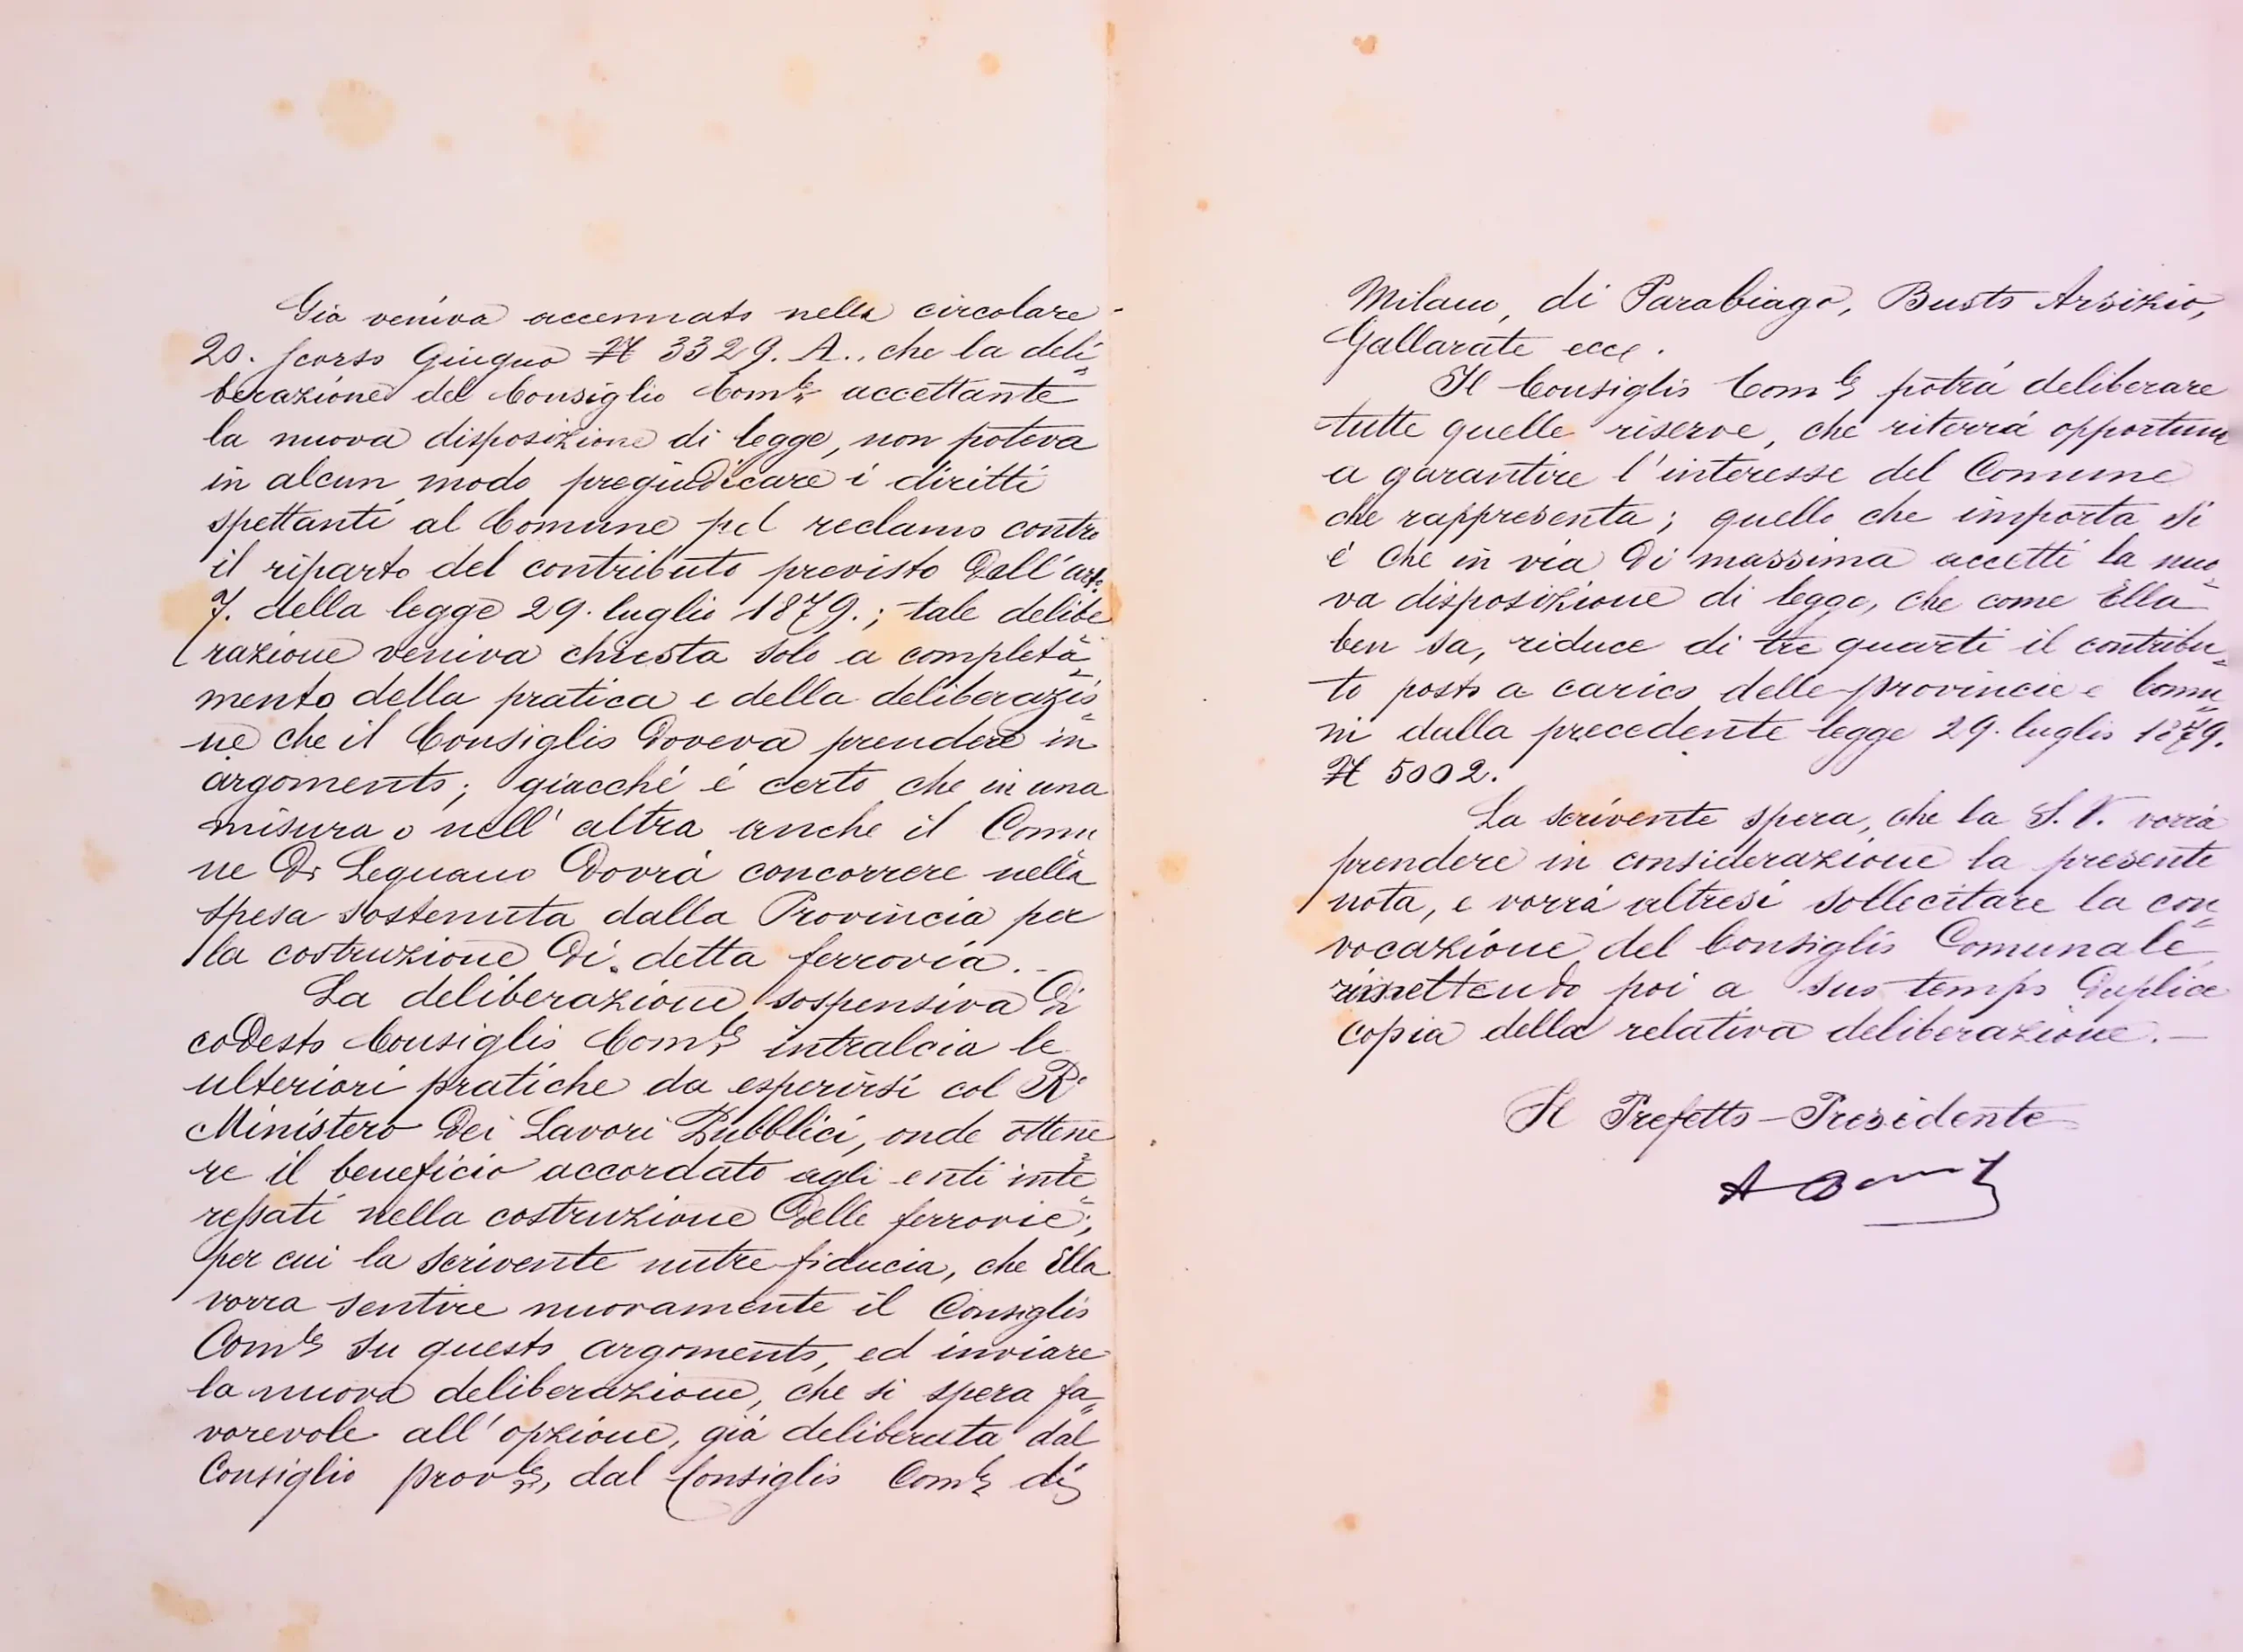 Già veniva accennato nella circolare
20. scorso Giugno N 3329. A., che la deli=
berazione del Consiglio Com.le accettante
la nuova disposizione di legge, non poteva
in alcun modo pregiudicare i diritti
spettanti al Comune pel reclamo contro
il riparto del contributo previsto dall'art.
7. della legge 29. luglio 1879.; tale delibe
razione veniva chiesta solo a completa=
mento della pratica e della deliberazio=
ne che il Consiglio doveva prendere in
argomento; giacché é certo che in una
misura o nell'altra anche il Comu
ne di Legnano dovrà concorrere nella
spesa sostenuta dalla Provincia per
la costruzione di detta ferrovia.-
La deliberazione sospensiva di
codesto Consiglio Com.le intralcia le
ulteriori pratiche da esperirsi col R.
Ministero dei Lavori Pubblici, onde ottene=
re il beneficio accordato agli enti inte=
ressati nella costruzione delle ferrovie;
per cui la scrivente nutre fiducia, che Ella
vorra sentire nuovamente il Consiglio
Com.le su questo argomento, ed inviare
la nuova deliberazione, che si spera fa=
vorevole all'opzione, già deliberata dal
Consiglio prov.le, dal Consiglio Com.le di
Milano, di Parabiago, Busto Arsizio,
Gallarate ecc.
Il Consiglio Com.le potrá deliberare
tutte quelle riserve, che riterrá opportune
a garantire l'interesse del Comune
che rappresenta; quello che importa si
é che in via di massima accetti la nuo=
va disposizione di legge, che come Ella
ben sa, riduce di tre quarti il contribu=
to posto a carico delle provincie e Comu=
ni dalla precedente legge 29. luglio 1879.
N 5002.
La scrivente spera, che la S. V. vorrà
prendere in considerazione la presente
nota, e vorrá altresí sollecitare la con=
vocazione del Consiglio Comunale
rimettendo poi a suo tempo duplice
copia della relativa deliberazione.-
Il Prefetto-Presidente